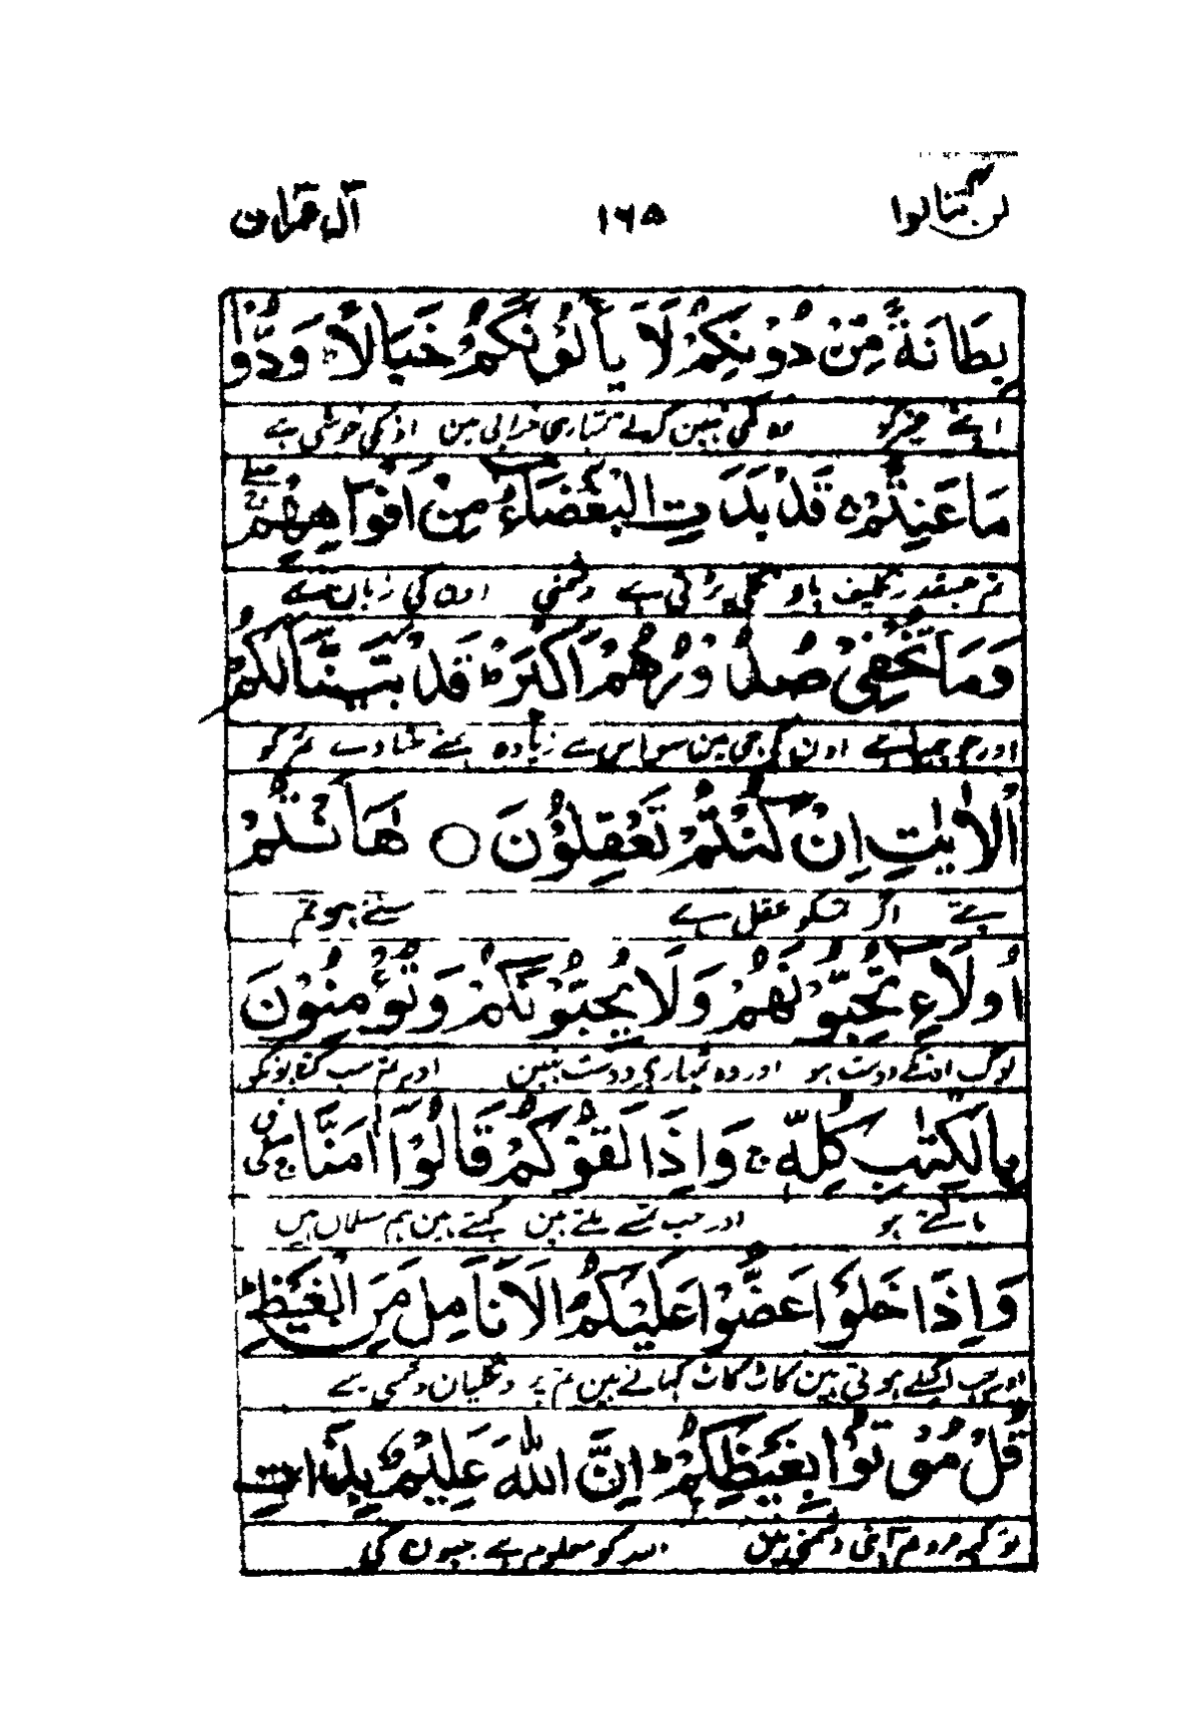 لن تنالوا ۴ ۱۶۵ آل عمران
بِطَانَةً مِّنْ دُوْنِكُمْ لَا يَأْلُوْنَكُمْ خَبَالًا ؕ وَدُّوْا
اپنے غیر کو وہ کمی نہین کرتے تمہاری خرابی مین اونکی خوشی ہے
مَا عَنِتُّمْ ۚ قَدْ بَدَتِ الْبَغْضَآءُ مِنْ اَفْوَاهِهِمْ ۖۚ
تم جسقدر تکلیف پاو نکلی پڑتی ہے دشمنی اون کی زبان سے
وَمَا تُخْفِيْ صُدُوْرُهُمْ اَكْبَرُ ؕ قَدْ بَيَّنَّا لَكُمُ
اور جو چھپا ہے اون کی جی مین سو اس سے زیادہ ہمنے بتا دے تم کو
الْاٰيٰتِ اِنْ كُنْتُمْ تَعْقِلُوْنَ ○ هٰٓاَنْتُمْ
پتے اگر تمکو عقل ہے سنتے ہو تم
اُولَآءِ تُحِبُّوْنَهُمْ وَلَا يُحِبُّوْنَكُمْ وَتُؤْمِنُوْنَ
لوگ اونکے دوست ہو اور وہ تمہاری دوست نہین اور تم سب کتابونکو
بِالْكِتٰبِ كُلِّهٖ ۚ وَاِذَا لَقُوْكُمْ قَالُوْٓا اٰمَنَّا ۖۚ
مانتے ہو اور جب تمسے ملتے ہین کہتے ہین ہم مسلمان ہیں
وَاِذَا خَلَوْا عَضُّوْا عَلَيْكُمُ الْاَنَامِلَ مِنَ الْغَيْظِ ؕ
اور جب اکیلے ہوتی ہین کاٹ کاٹ کہاتے ہین تم پر اونگلیان دشمنی سے
قُلْ مُوْتُوْا بِغَيْظِكُمْ ؕ اِنَّ اللّٰهَ عَلِيْمٌۢ بِذَاتِ
تو کہہ مرو تم اپنی دشمنی مین اللہ کو معلوم ہے جیون کی